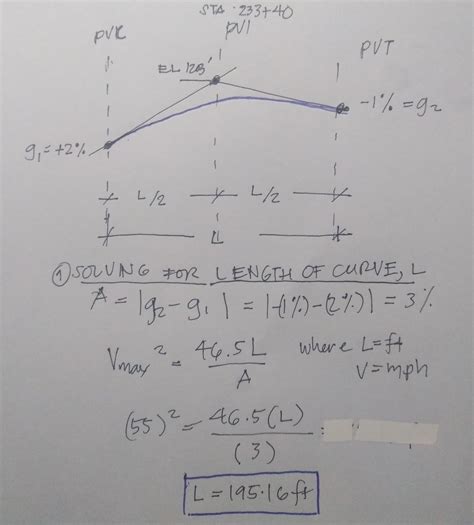 STA. 233+40
PVC PVI PVT
EL 123'
g₁=+2% -1%=g₂
L/2 L/2
L
① SOLVING FOR LENGTH OF CURVE, L
A = |g₂-g₁| = |-(1%)-(2%)| = 3%
Vmax² = 46.5L / A where L=ft
V=mph
(55)² = 46.5(L) / (3) =
L = 195.16ft